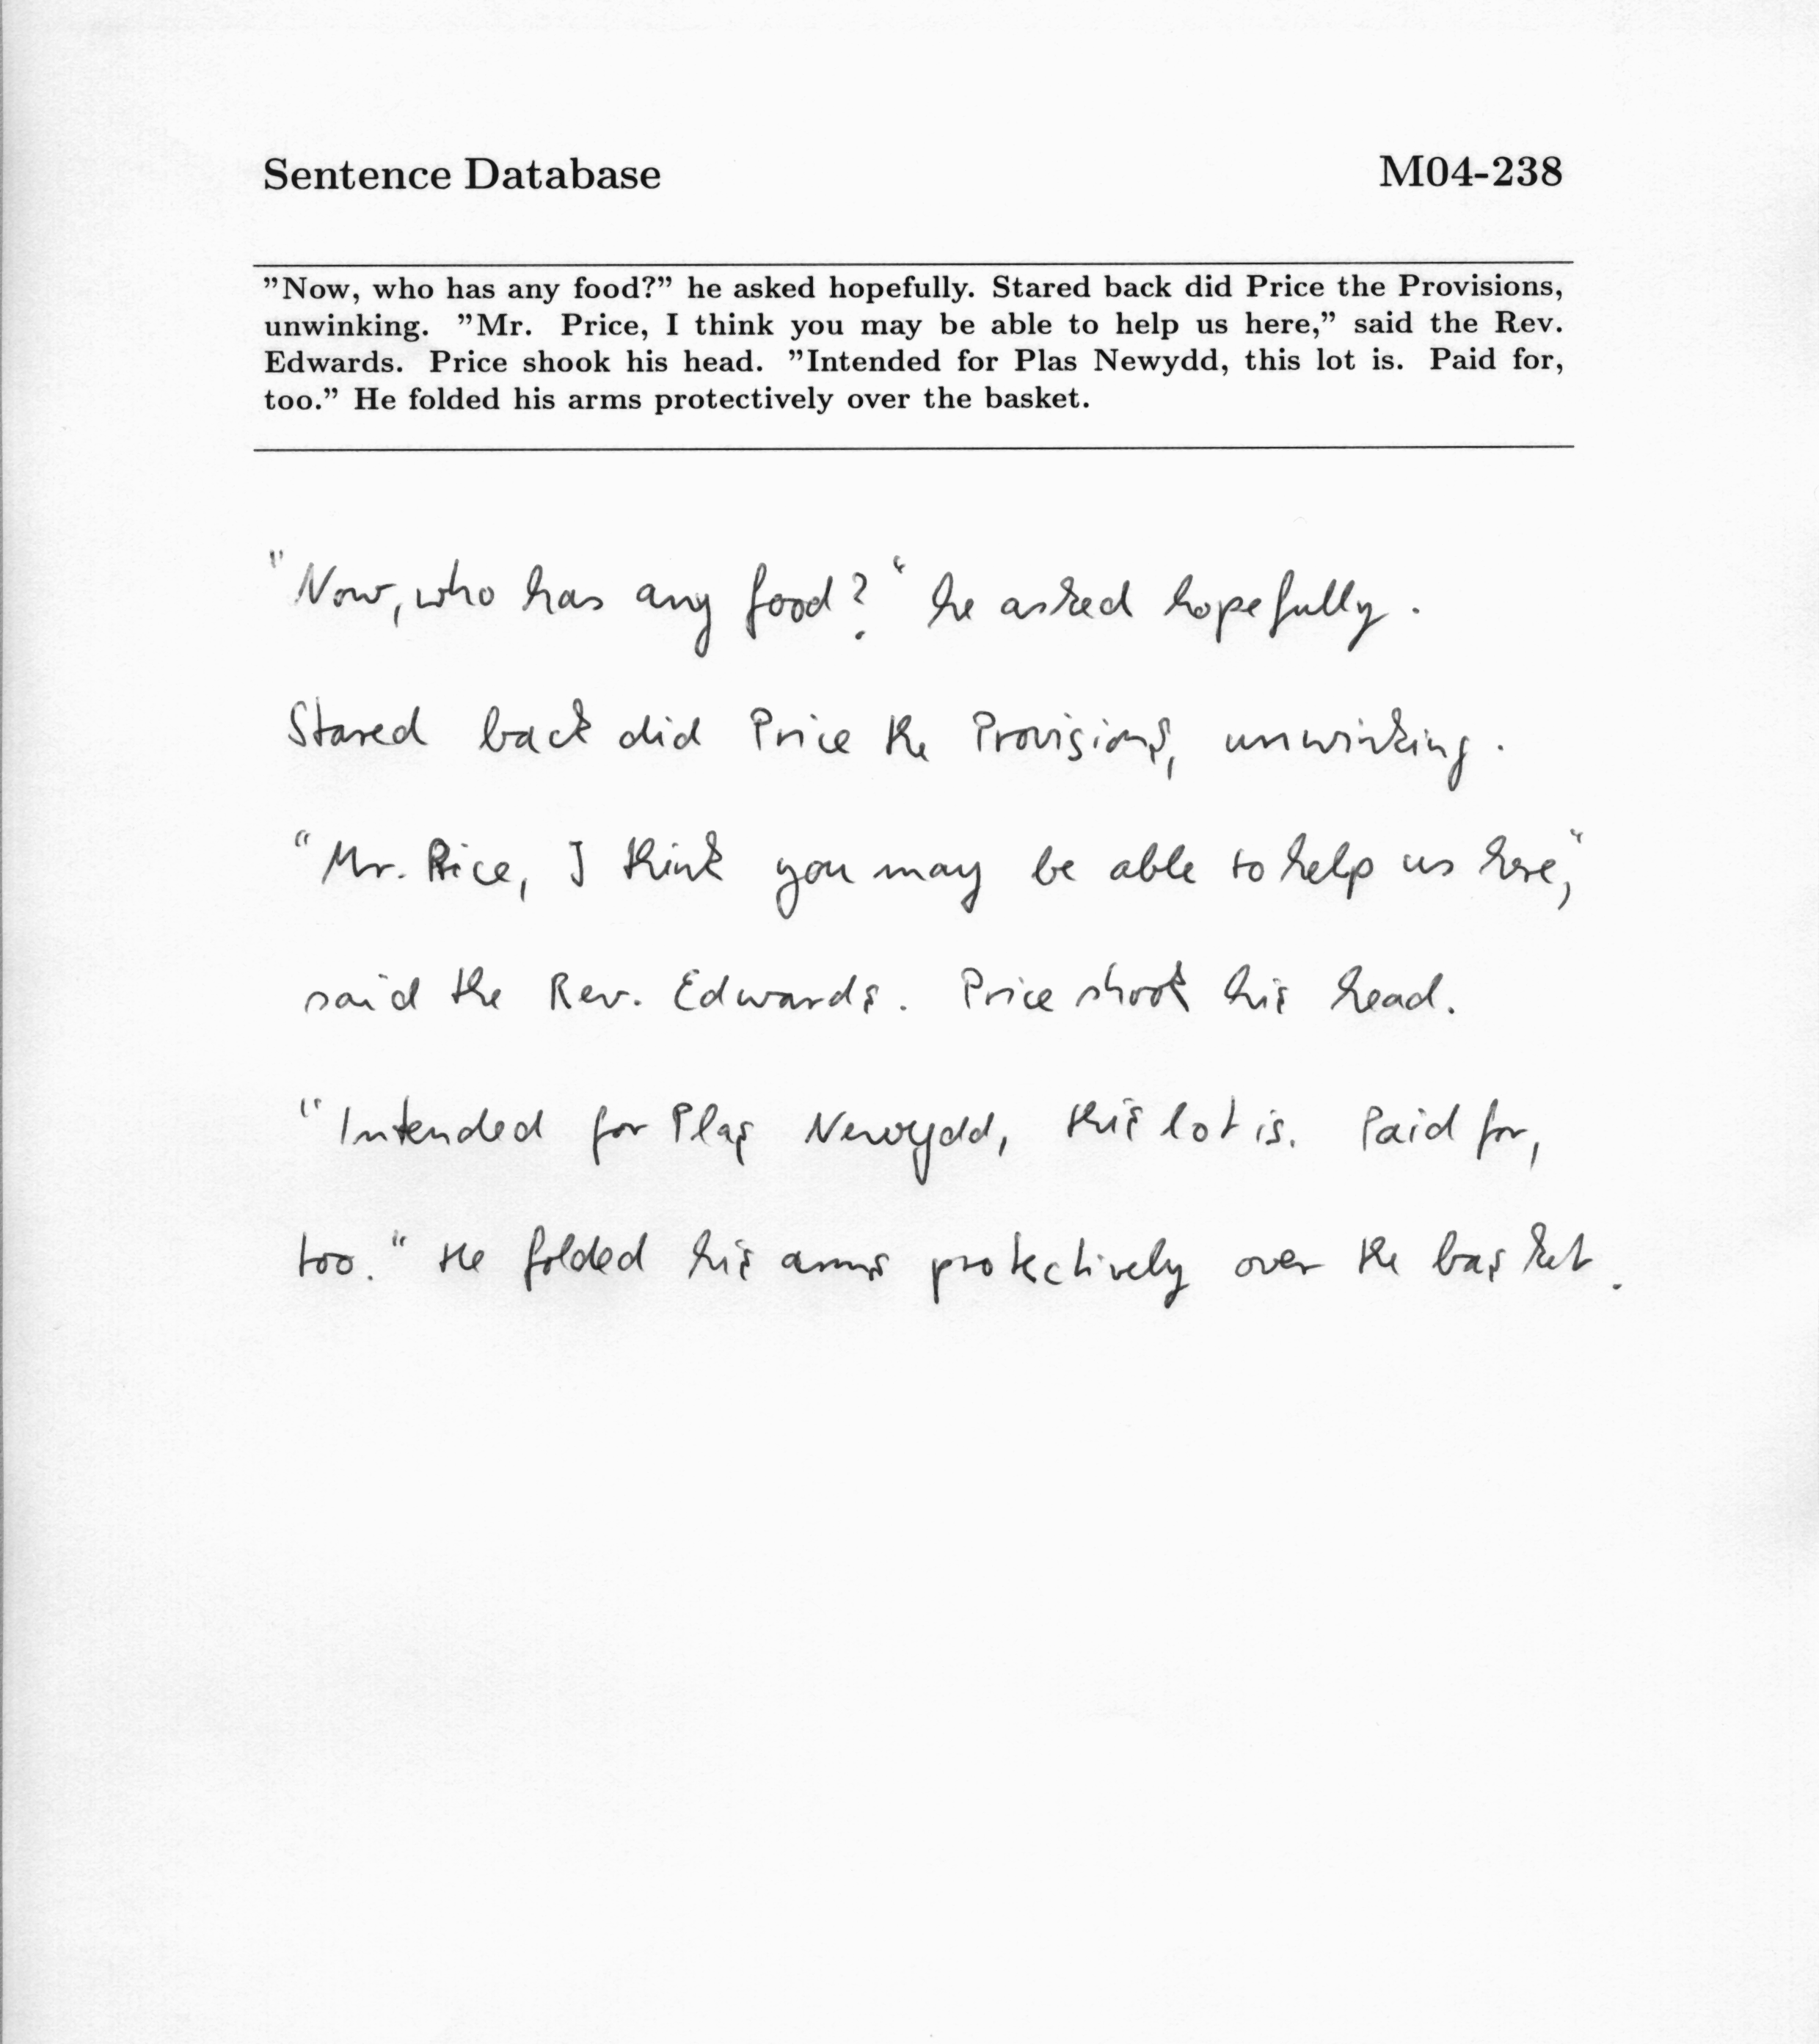 Sentence Database M04-238
"Now, who has any food?" he asked hopefully. Stared back did Price the Provisions,
unwinking. "Mr. Price, I think you may be able to help us here," said the Rev.
Edwards. Price shook his head. "Intended for Plas Newydd, this lot is. Paid for,
too." He folded his arms protectively over the basket.
"Now, who has any food?" he asked hopefully.
Stared back did Price the Provisions, unwinking.
"Mr. Price, I think you may be able to help us here,"
said the Rev. Edwards. Price shook his head.
"Intended for Plas Newydd, this lot is. Paid for,
too." He folded his arms protectively over the basket.